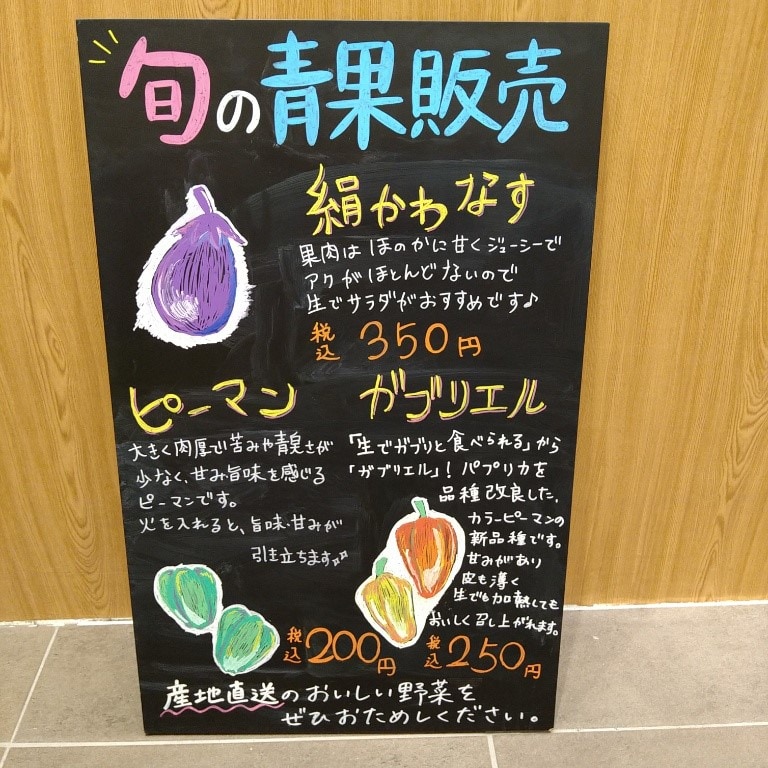 旬の青果販売
絹かわなす
果肉はほのかに甘くジューシーで
アクがほとんどないので
生でサラダがおすすめです♪
税込 350円
ピーマン
大きく肉厚で苦みや青臭さが
少なく、甘み旨味を感じる
ピーマンです。
火を入れると、旨味・甘みが
引き立ちます♪♪
税込 200円
ガブリエル
「生でガブリと食べられる」から
「ガブリエル」! パプリカを
品種改良した、
カラーピーマンの
新品種です。
甘みがあり
皮も薄く
生でも加熱しても
おいしく召し上がれます。
税込 250円
産地直送のおいしい野菜を
ぜひおためしください。